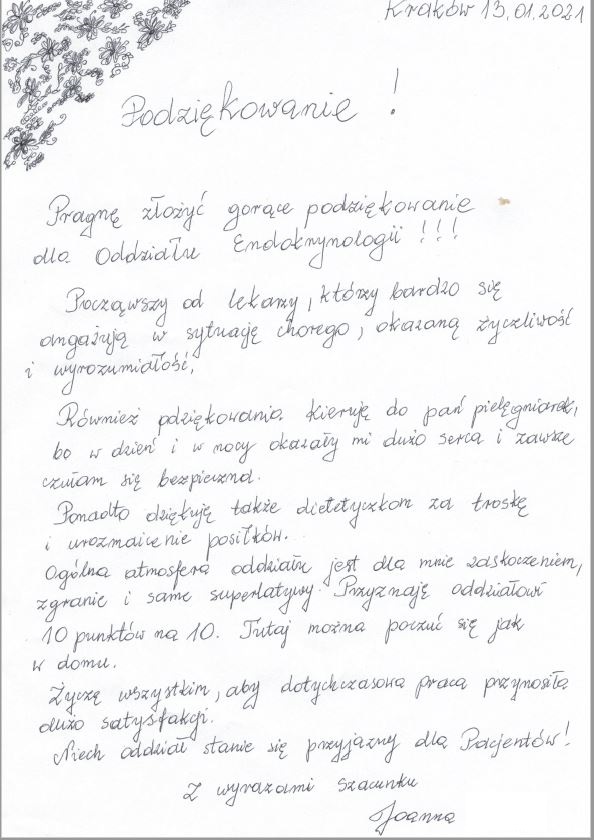 Kraków 13.01.2021
Podziękowanie !
Pragnę złożyć gorące podziękowanie
dla Oddziału Endokrynologii !!!
Począwszy od lekarzy, którzy bardzo się
angażują w sytuację chorego, okazaną życzliwość
i wyrozumiałość,
Również pdziękowania kieruję do pań pielęgniarek,
bo w dzień i w nocy okazały mi dużo serca i zawsze
czułam się bezpieczna.
Ponadto dziękuję także dietetyczkom za troskę
i urozmaicenie posiłków.
Ogólna atmosfera oddziału jest dla mnie zaskoczeniem,
zgranie i same superlatywy. Przyznaję oddziałowi
10 punktów na 10. Tutaj można poczuć się jak
w domu.
Życzę wszystkim, aby dotychczasowa praca przynosiła
dużo satysfakcji.
Niech oddział stanie się przyjazny dla Pacjentów!
Z wyrazami szacunku
Joanna